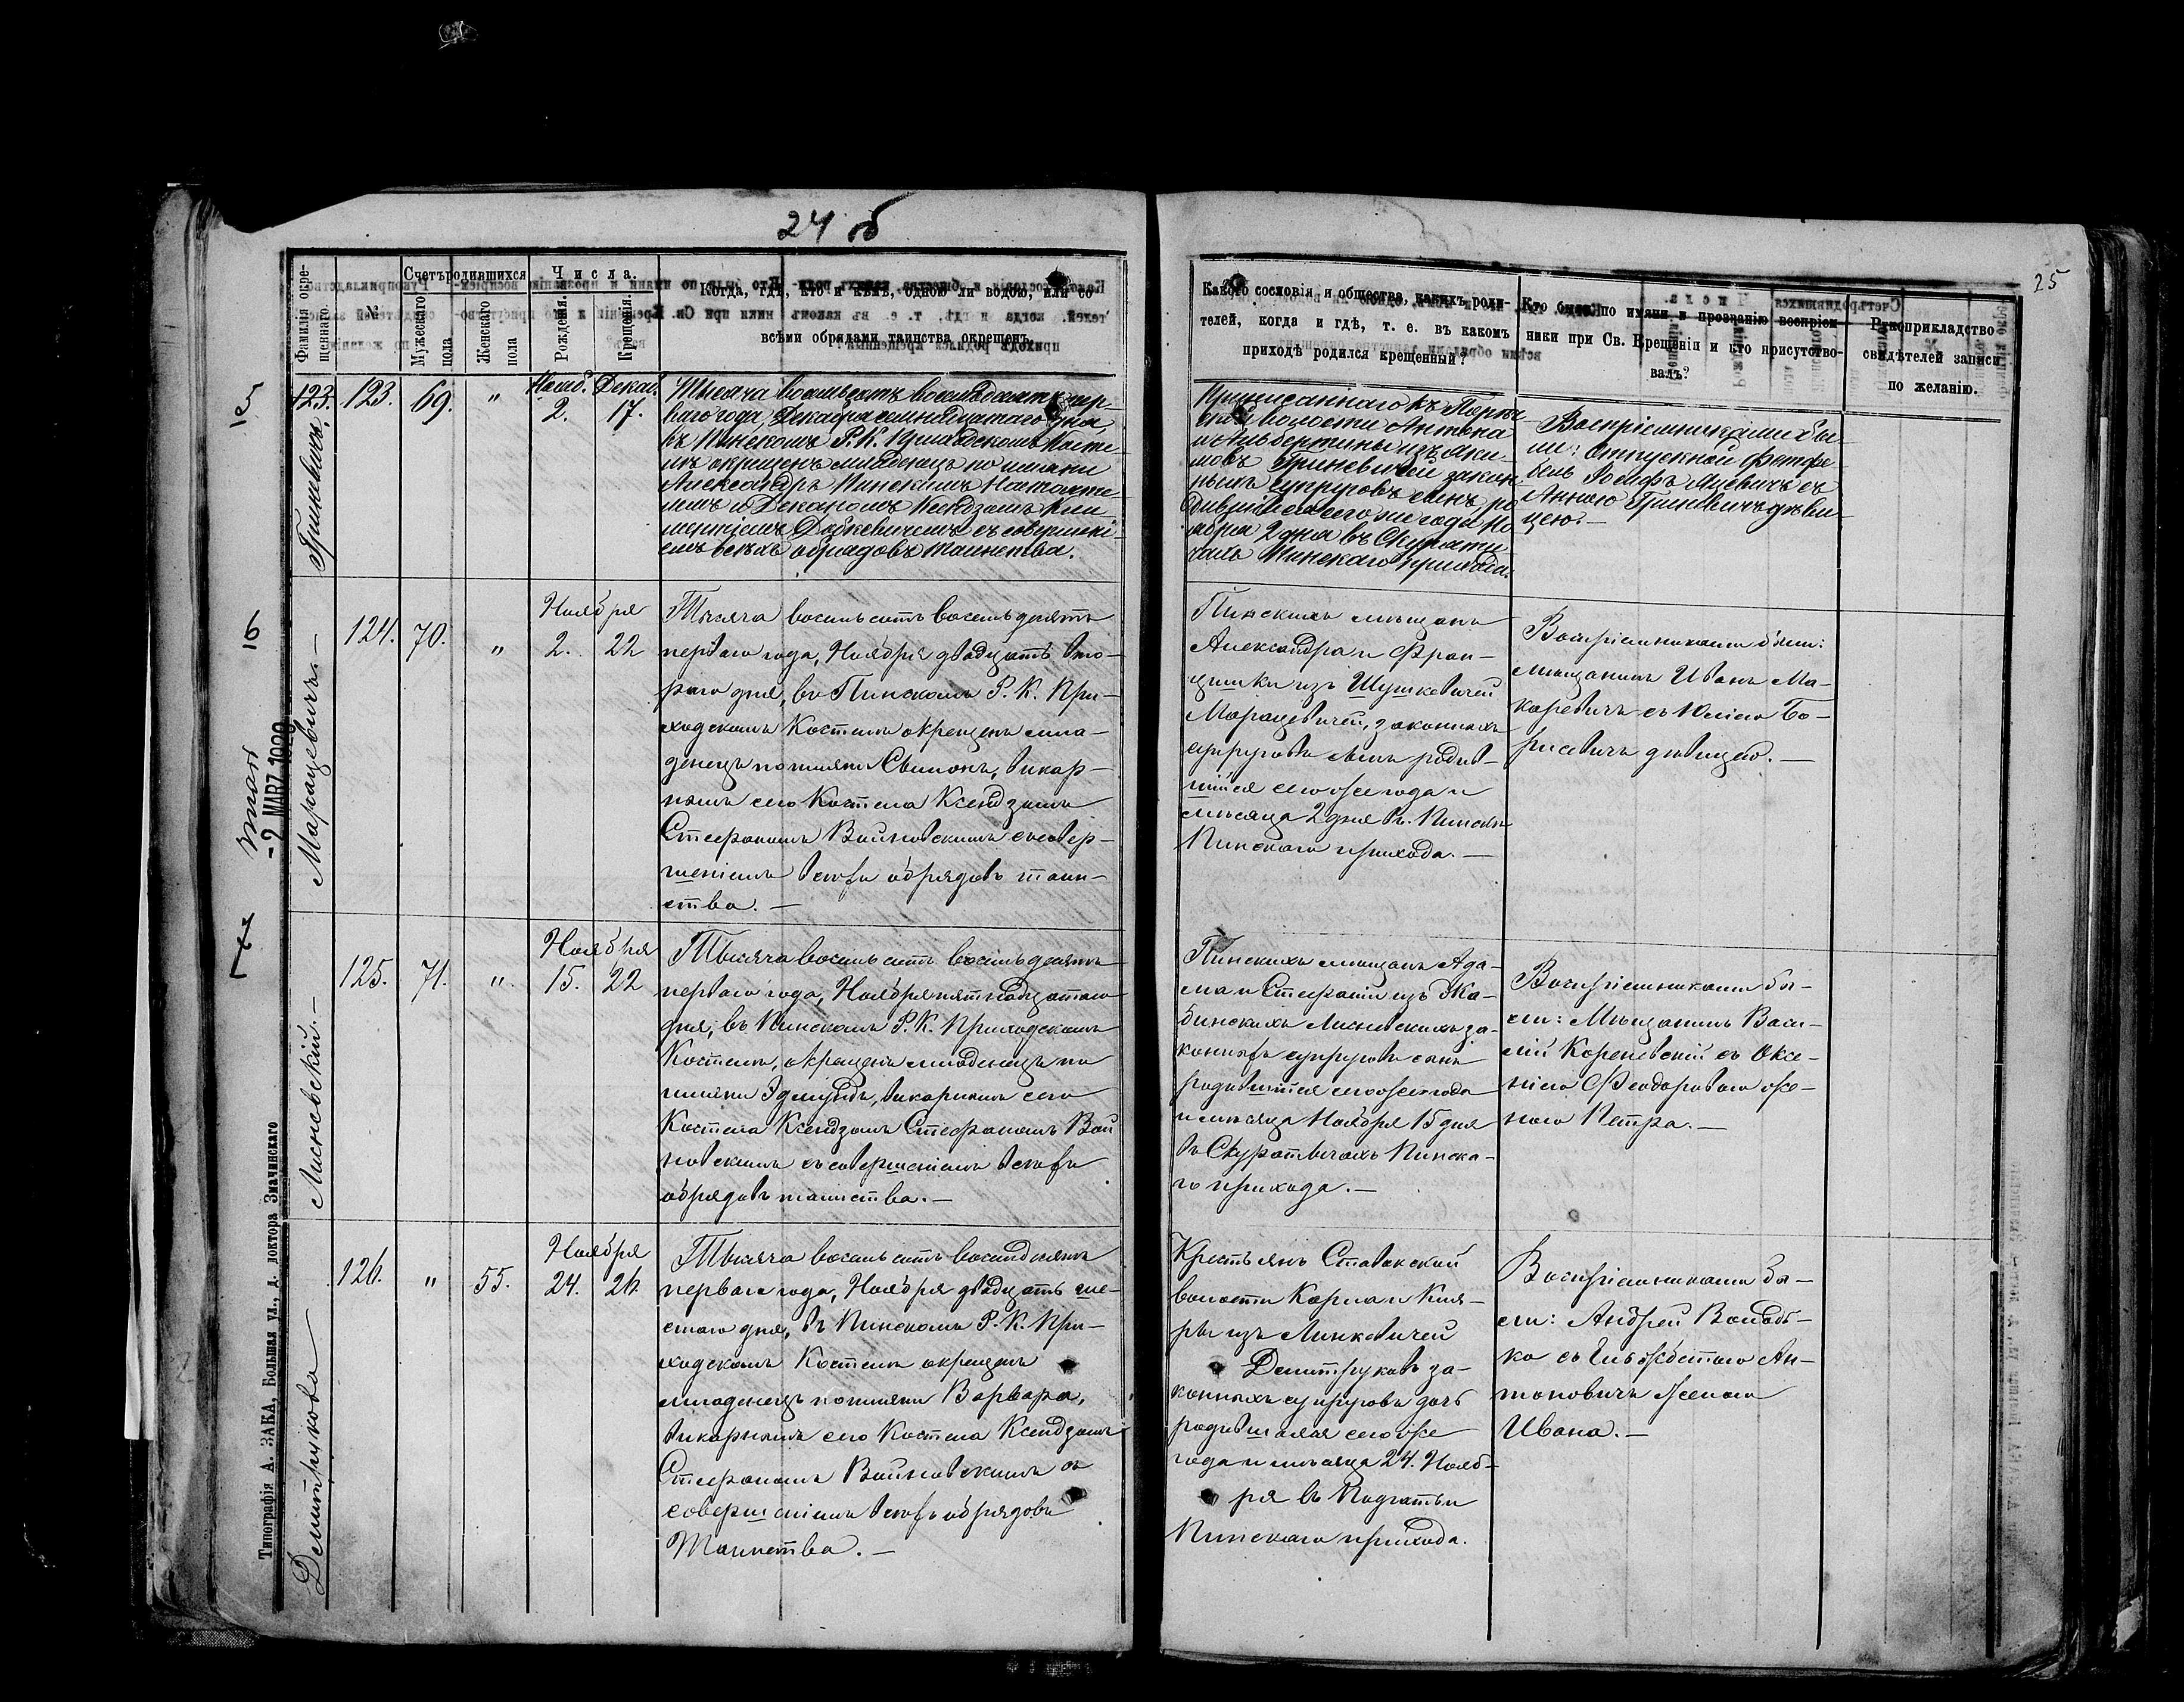 24 об
25
Фамилія окре-
щеннаго.
№
Счетъ родившихся
Мужескаго
пола
Женскаго
пола
Числа.
Рожденія.
Крещенія.
Когда, гдѣ, кто и кѣмъ, одною ли водою, или со
всѣми обрядами таинства окрещенъ.
Какого сословія и общества, какихъ роди-
телей, когда и гдѣ, т. е. въ какомъ
приходѣ родился крещенный?
Кто былъ по имени и прозванію воспріем-
ники при Св. Крещеніи и кто присутство-
валъ?
Рукоприкладство
свидѣтелей записи
по желанію.
123.
Гриневичъ.
123. 69. " Нояб. 2. Декаб. 17.
Тысяча восемьсотъ восемьдесятъ пер-
ваго года, Декабря семнадцатаго дня
въ Пинскомъ Р. К. Приходскомъ Косте-
лѣ окрещенъ младенецъ по имени
Александръ Пинскимъ Настояте-
лемъ и Деканомъ Ксендзомъ
съ совершені-
емъ всѣхъ обрядовъ таинства.
Приписаннаго къ
волости Антона
и Альбертины изъ
Гриневичей закон-
ныхъ супруговъ сынъ, ро-
дившійся сего же года Но-
ября 2 дня въ Скурати-
чахъ Пинскаго прихода.
Воспріемниками бы-
ли: отпускной фельдфе-
бель Іосифъ съ
Анною Гриневичъ дѣви-
цею.—
Марацевичъ.—
124. 70. " Ноября 2. 22
Тысяча восемьсотъ восемьдесятъ
перваго года, Ноября двадцать вто-
раго дня, въ Пинскомъ Р. К. При-
ходскомъ Костелѣ окрещенъ мла-
денецъ по имени Симонъ, викар-
нымъ сего Костела Ксендзомъ
Стефаномъ Войновскимъ съ совер-
шеніемъ всѣхъ обрядовъ таин-
ства.—
Пинскихъ мѣщанъ
Александра и Фран-
цишки изъ Шушкевичей
Марацевичей, законныхъ
супруговъ сынъ родив-
шійся сего же года и
мѣсяца 2 дня въ г. Пинскѣ
Пинскаго прихода.—
Воспріемниками были:
мѣщанинъ Иванъ Ма-
каревичъ съ Юліею Бо-
рисевичъ дѣвицею.—
Лисновскій.—
125. 71. ". Ноября 15. 22
Тысяча восемьсотъ восемьдесятъ
перваго года, Ноября пятнадцатаго
дня, въ Пинскомъ Р. К. Приходскомъ
Костелѣ, окрещенъ младенецъ по
имени Эдмундъ, викарнымъ сего
Костела Ксендзомъ Стефаномъ Вой-
новскимъ съ совершеніемъ всѣхъ
обрядовъ таинства.—
Пинскихъ мѣщанъ Ада-
ма и Стефаніи изъ Жа-
бинскихъ Лисновскихъ за-
конныхъ супруговъ сынъ
родившійся сего же года
и мѣсяца Ноября 15 дня
въ Скуратичахъ Пинска-
го прихода.—
Воспріемниками бы-
ли: Мѣщанинъ Васи-
лій Кореневскій съ Оксе-
ніею Ѳеодоровою же-
ною Петра.—
Демитрукова
126. " 55. Ноября 24. 26.
Тысяча восемьсотъ восемьдесятъ
перваго года, Ноября двадцать ше-
стаго дня, въ Пинскомъ Р. К. При-
ходскомъ Костелѣ окрещенъ
младенецъ по имени Варвара,
викарнымъ сего Костела Ксендзомъ
Стефаномъ Войновскимъ съ
совершеніемъ всѣхъ обрядовъ
Таинства.—
Крестьянъ Ставокской
волости Карла и Кля-
ры изъ Линкевичей
Демитруковъ за-
конныхъ супруговъ дочь
родившаяся сего же
года и мѣсяца 24. Нояб-
ря въ
Пинскаго прихода.
Воспріемниками бы-
ли: Андрей
съ Ельжбетою Ан-
тоновичъ женою
Ивана.—
-2 MART 1928
Типографія А. ЗАКА, Большая ул., д. доктора Значинскаго